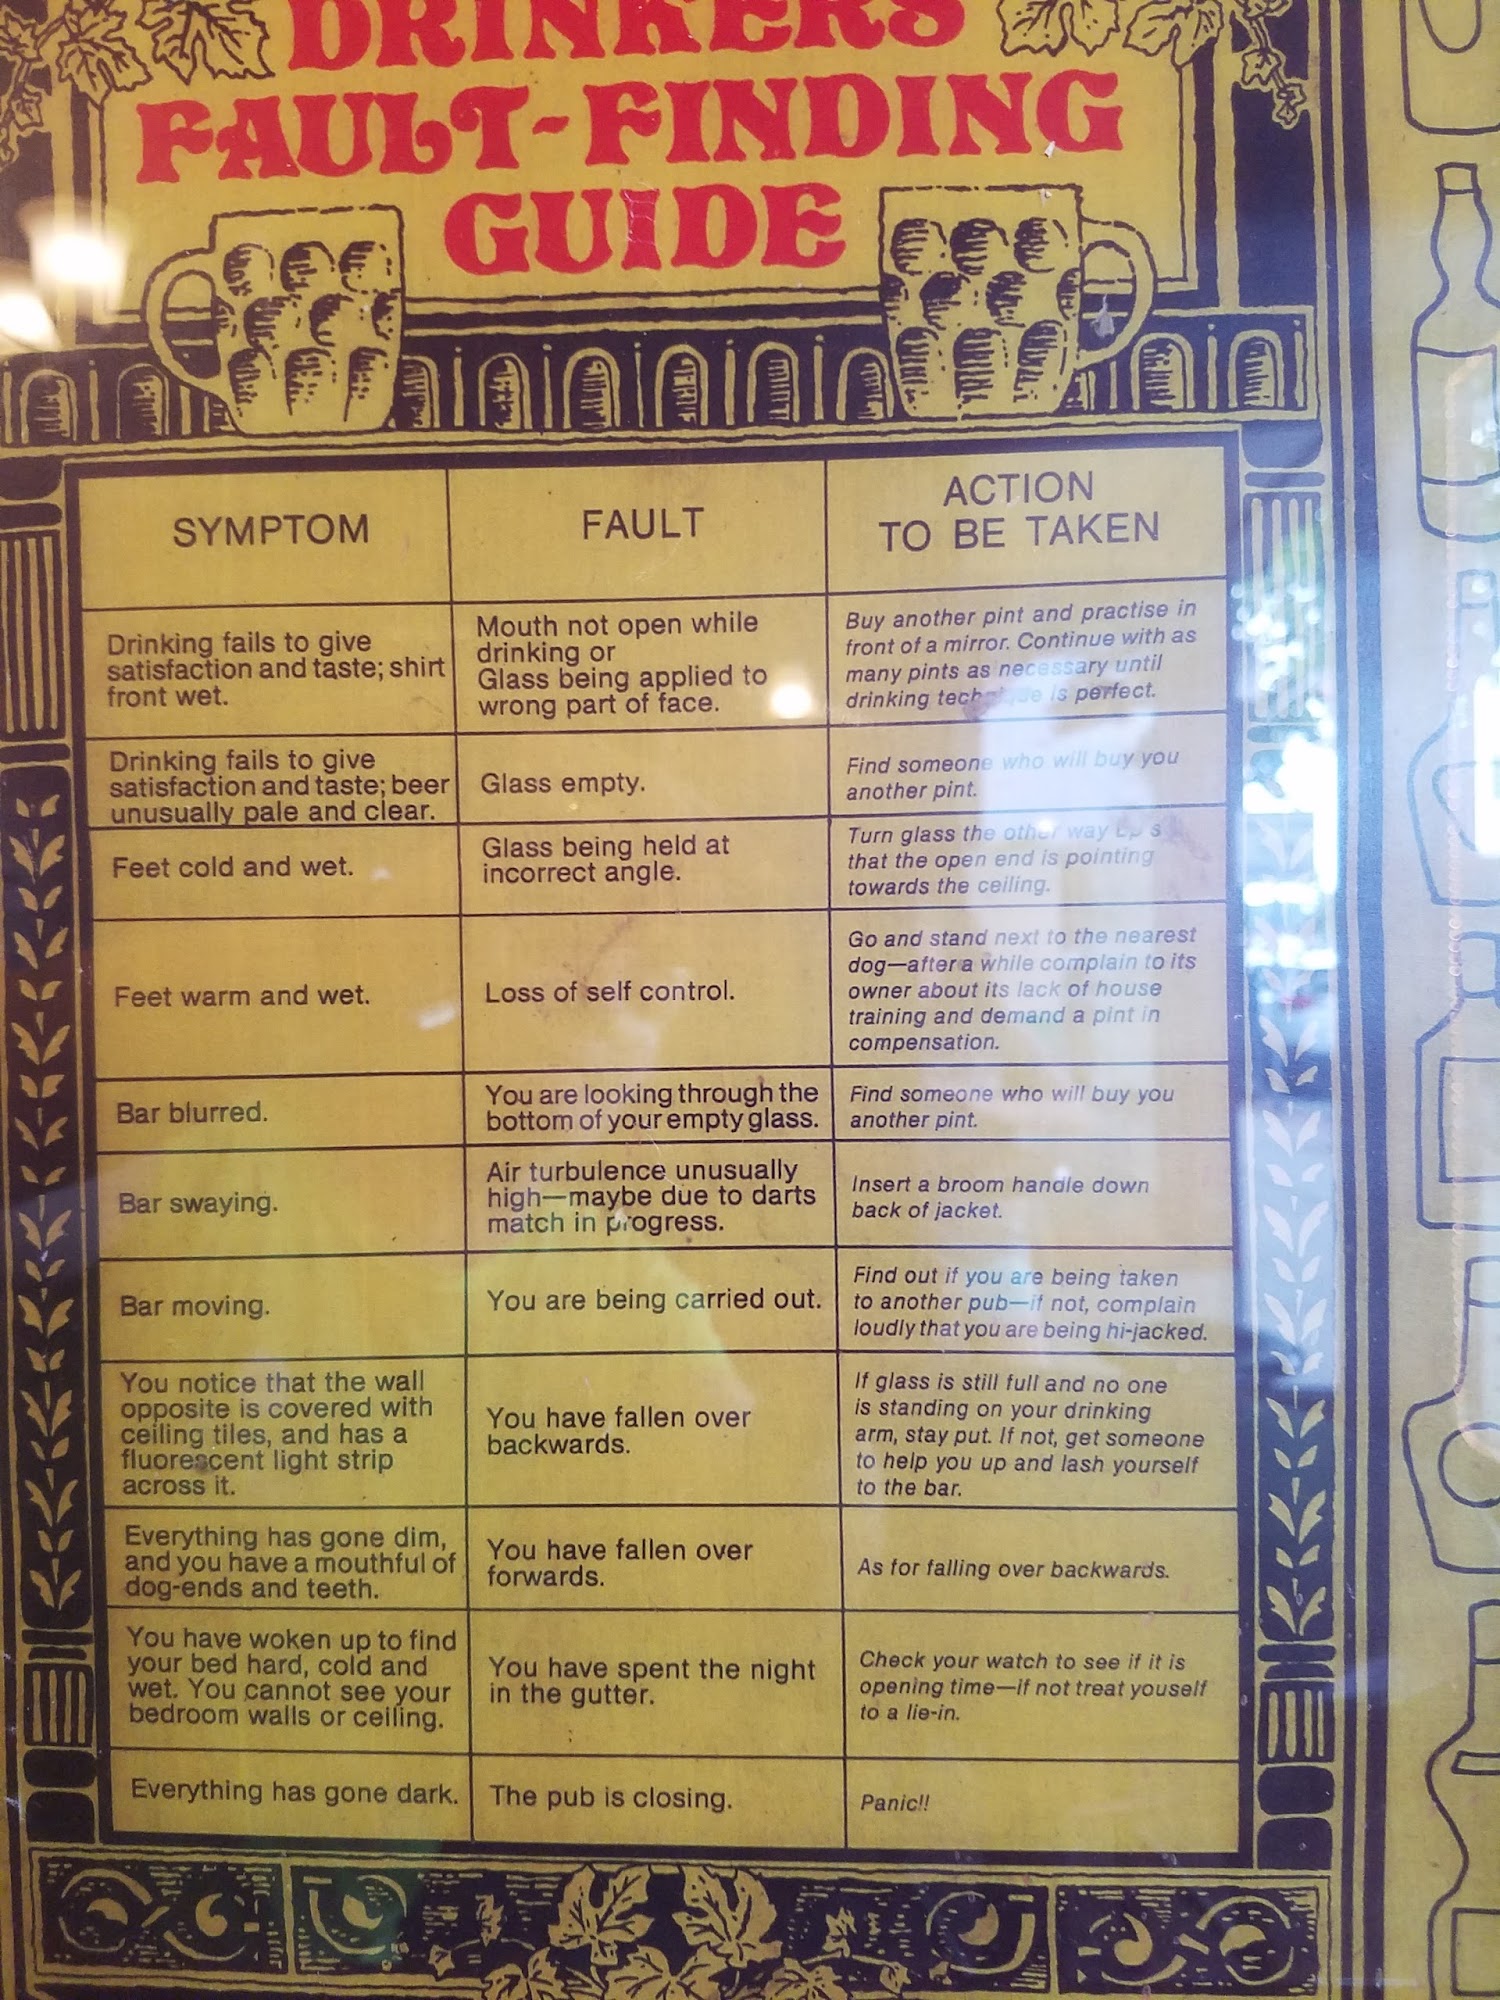 DRINKERS
FAULT-FINDING
GUIDE
SYMPTOM
FAULT
ACTION
TO BE TAKEN
Drinking fails to give
satisfaction and taste; shirt
front wet.
Mouth not open while
drinking or
Glass being applied to
wrong part of face.
Buy another pint and practise in
front of a mirror. Continue with as
many pints as necessary until
drinking technique is perfect.
Drinking fails to give
satisfaction and taste; beer
unusually pale and clear.
Glass empty.
Find someone who will buy you
another pint.
Feet cold and wet.
Glass being held at
incorrect angle.
Turn glass the other way up s
that the open end is pointing
towards the ceiling.
Feet warm and wet.
Loss of self control.
Go and stand next to the nearest
dog—after a while complain to its
owner about its lack of house
training and demand a pint in
compensation.
Bar blurred.
You are looking through the
bottom of your empty glass.
Find someone who will buy you
another pint.
Bar swaying.
Air turbulence unusually
high—maybe due to darts
match in progress.
Insert a broom handle down
back of jacket.
Bar moving.
You are being carried out.
Find out if you are being taken
to another pub—if not, complain
loudly that you are being hi-jacked.
You notice that the wall
opposite is covered with
ceiling tiles, and has a
fluorescent light strip
across it.
You have fallen over
backwards.
If glass is still full and no one
is standing on your drinking
arm, stay put. If not, get someone
to help you up and lash yourself
to the bar.
Everything has gone dim,
and you have a mouthful of
dog-ends and teeth.
You have fallen over
forwards.
As for falling over backwards.
You have woken up to find
your bed hard, cold and
wet. You cannot see your
bedroom walls or ceiling.
You have spent the night
in the gutter.
Check your watch to see if it is
opening time—if not treat youself
to a lie-in.
Everything has gone dark.
The pub is closing.
Panic!!